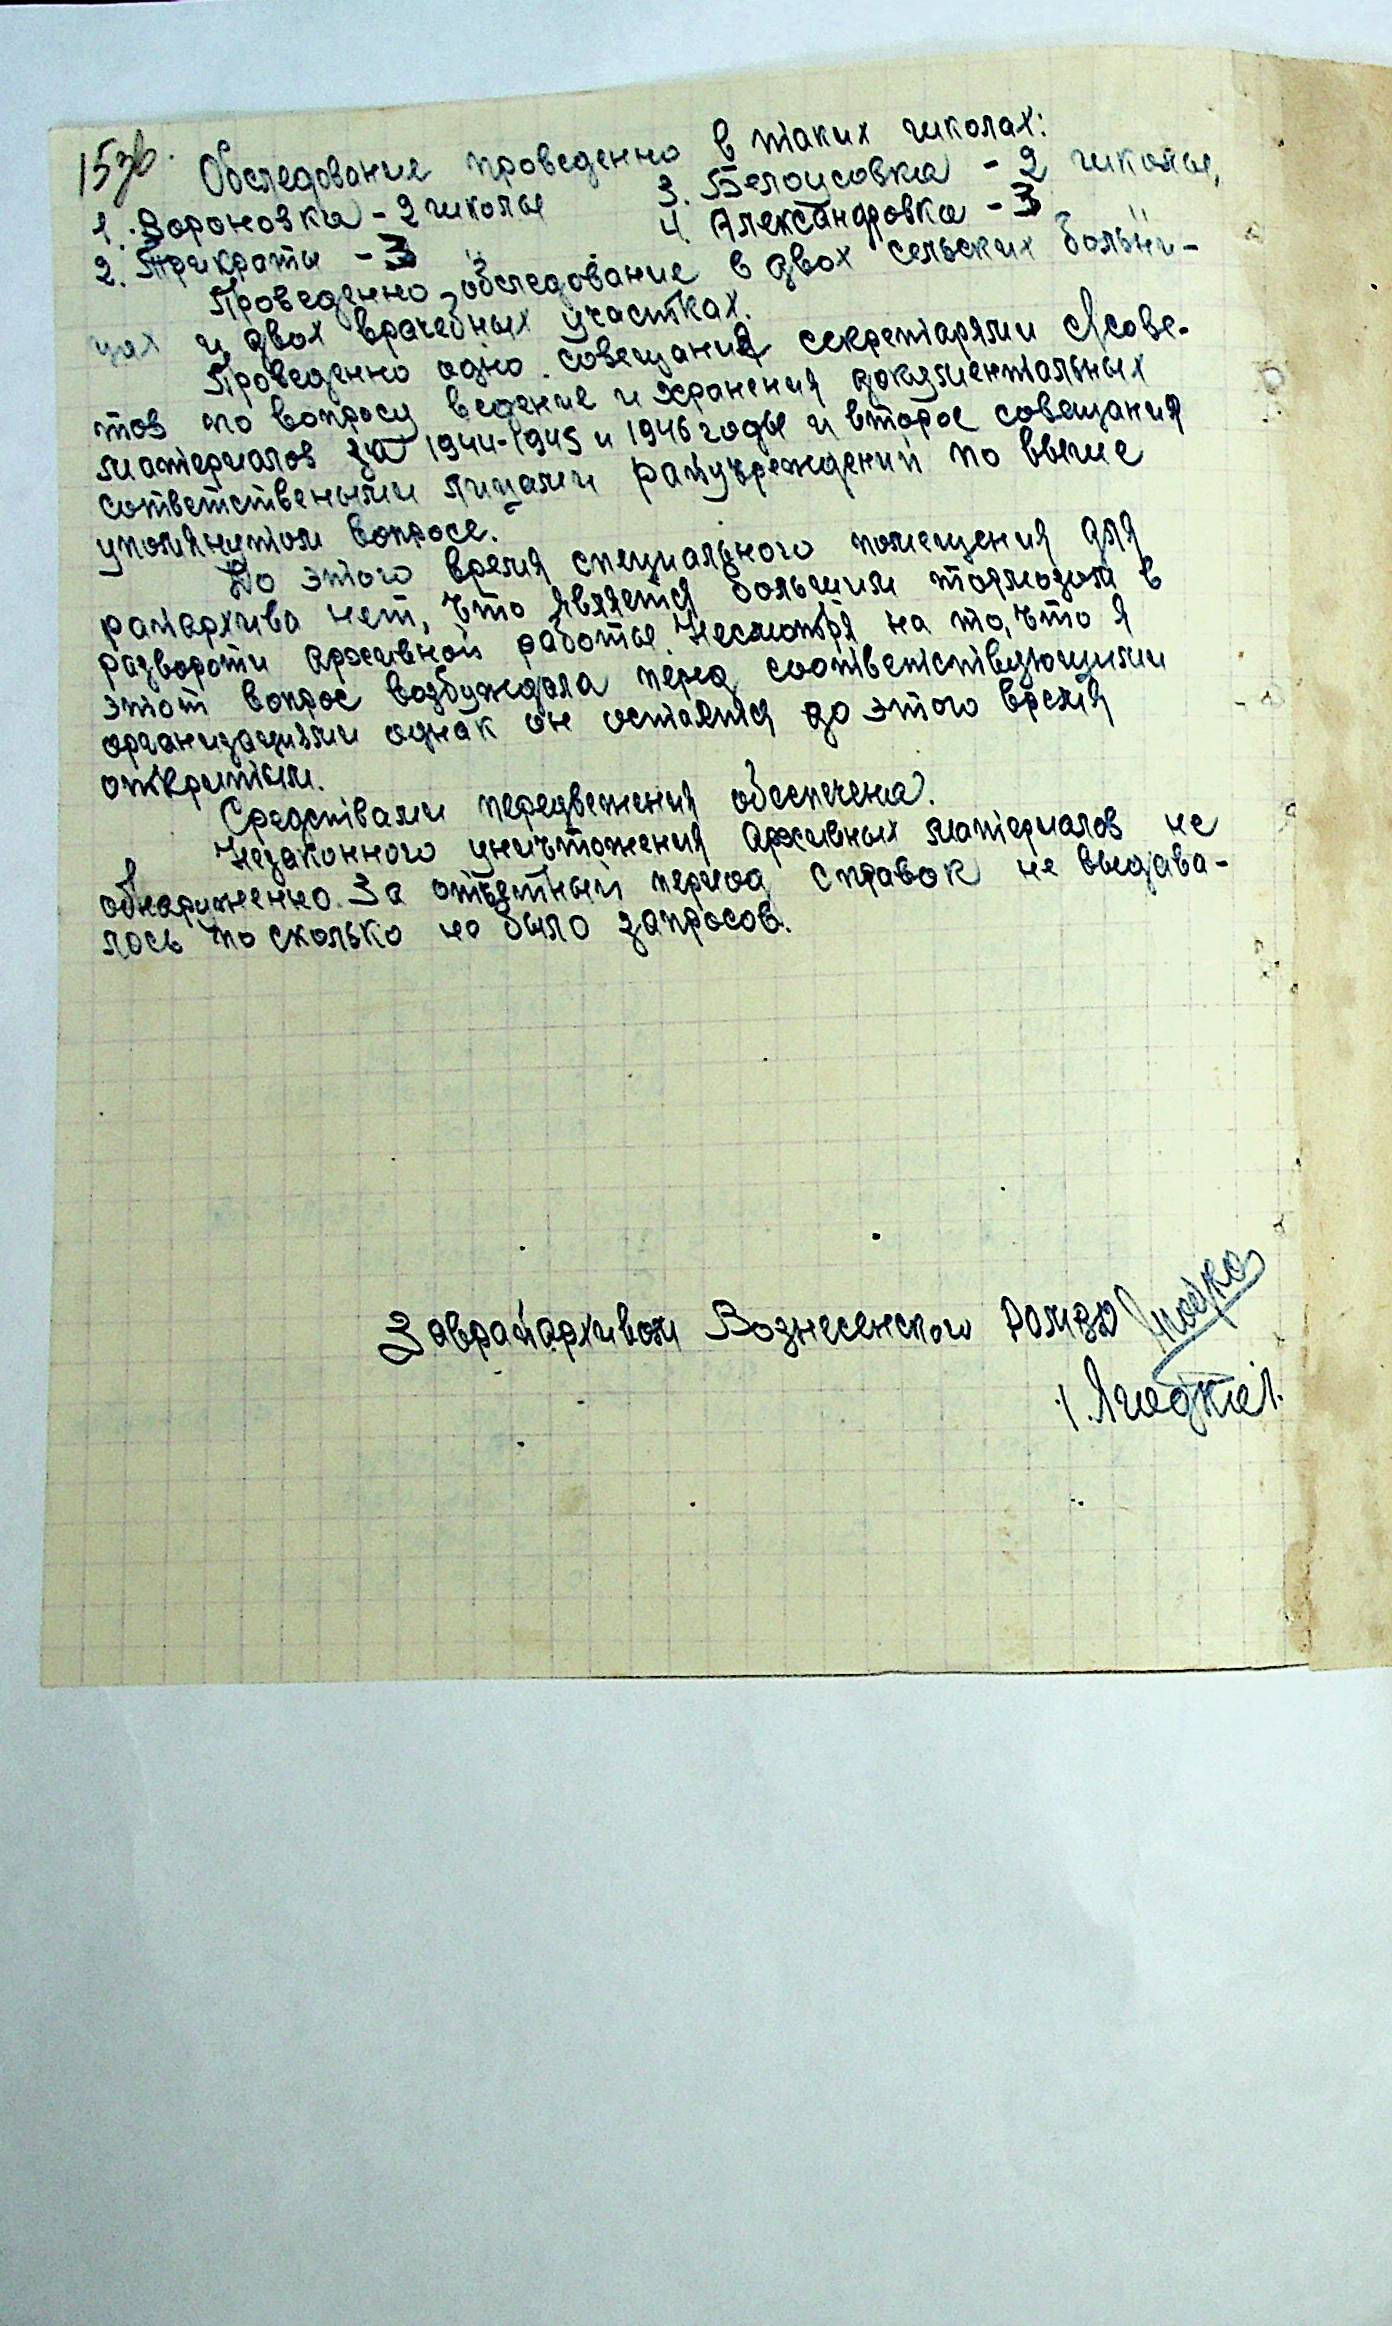 15зв.
Обследование проведенно в таких школах:
1. Вороновка - 2 школы 3. Белоусовка - 2 школы,
2. Трикраты - 3 " 4. Александровка - 3 "
Проведенно обследование в двох сельских больни-
цах и двох врачебных участках.
Проведенно одно совещания секретарями с/сове-
тов по вопросу ведение и хранения документальных
материалов за 1944-1945 и 1946 годы и второе совещания
сответствеными лицами райучреждений по выше
упомянутом вопросе.
До этого время специального помещения для
райархива нет, что является большим тормозом в
развороти архивной работы. Несмотря на то, что я
этот вопрос возбуждала перед соответствующими
организациями однак он остается до этого время
открытим.
Средствами передвежения обеспечена.
Незаконного уничтожения архивных материалов не
обнаруженно. За отчетный период справок не выдава-
лось по сколько не было запросов.
Заврайархивом Вознесенского РОМВД